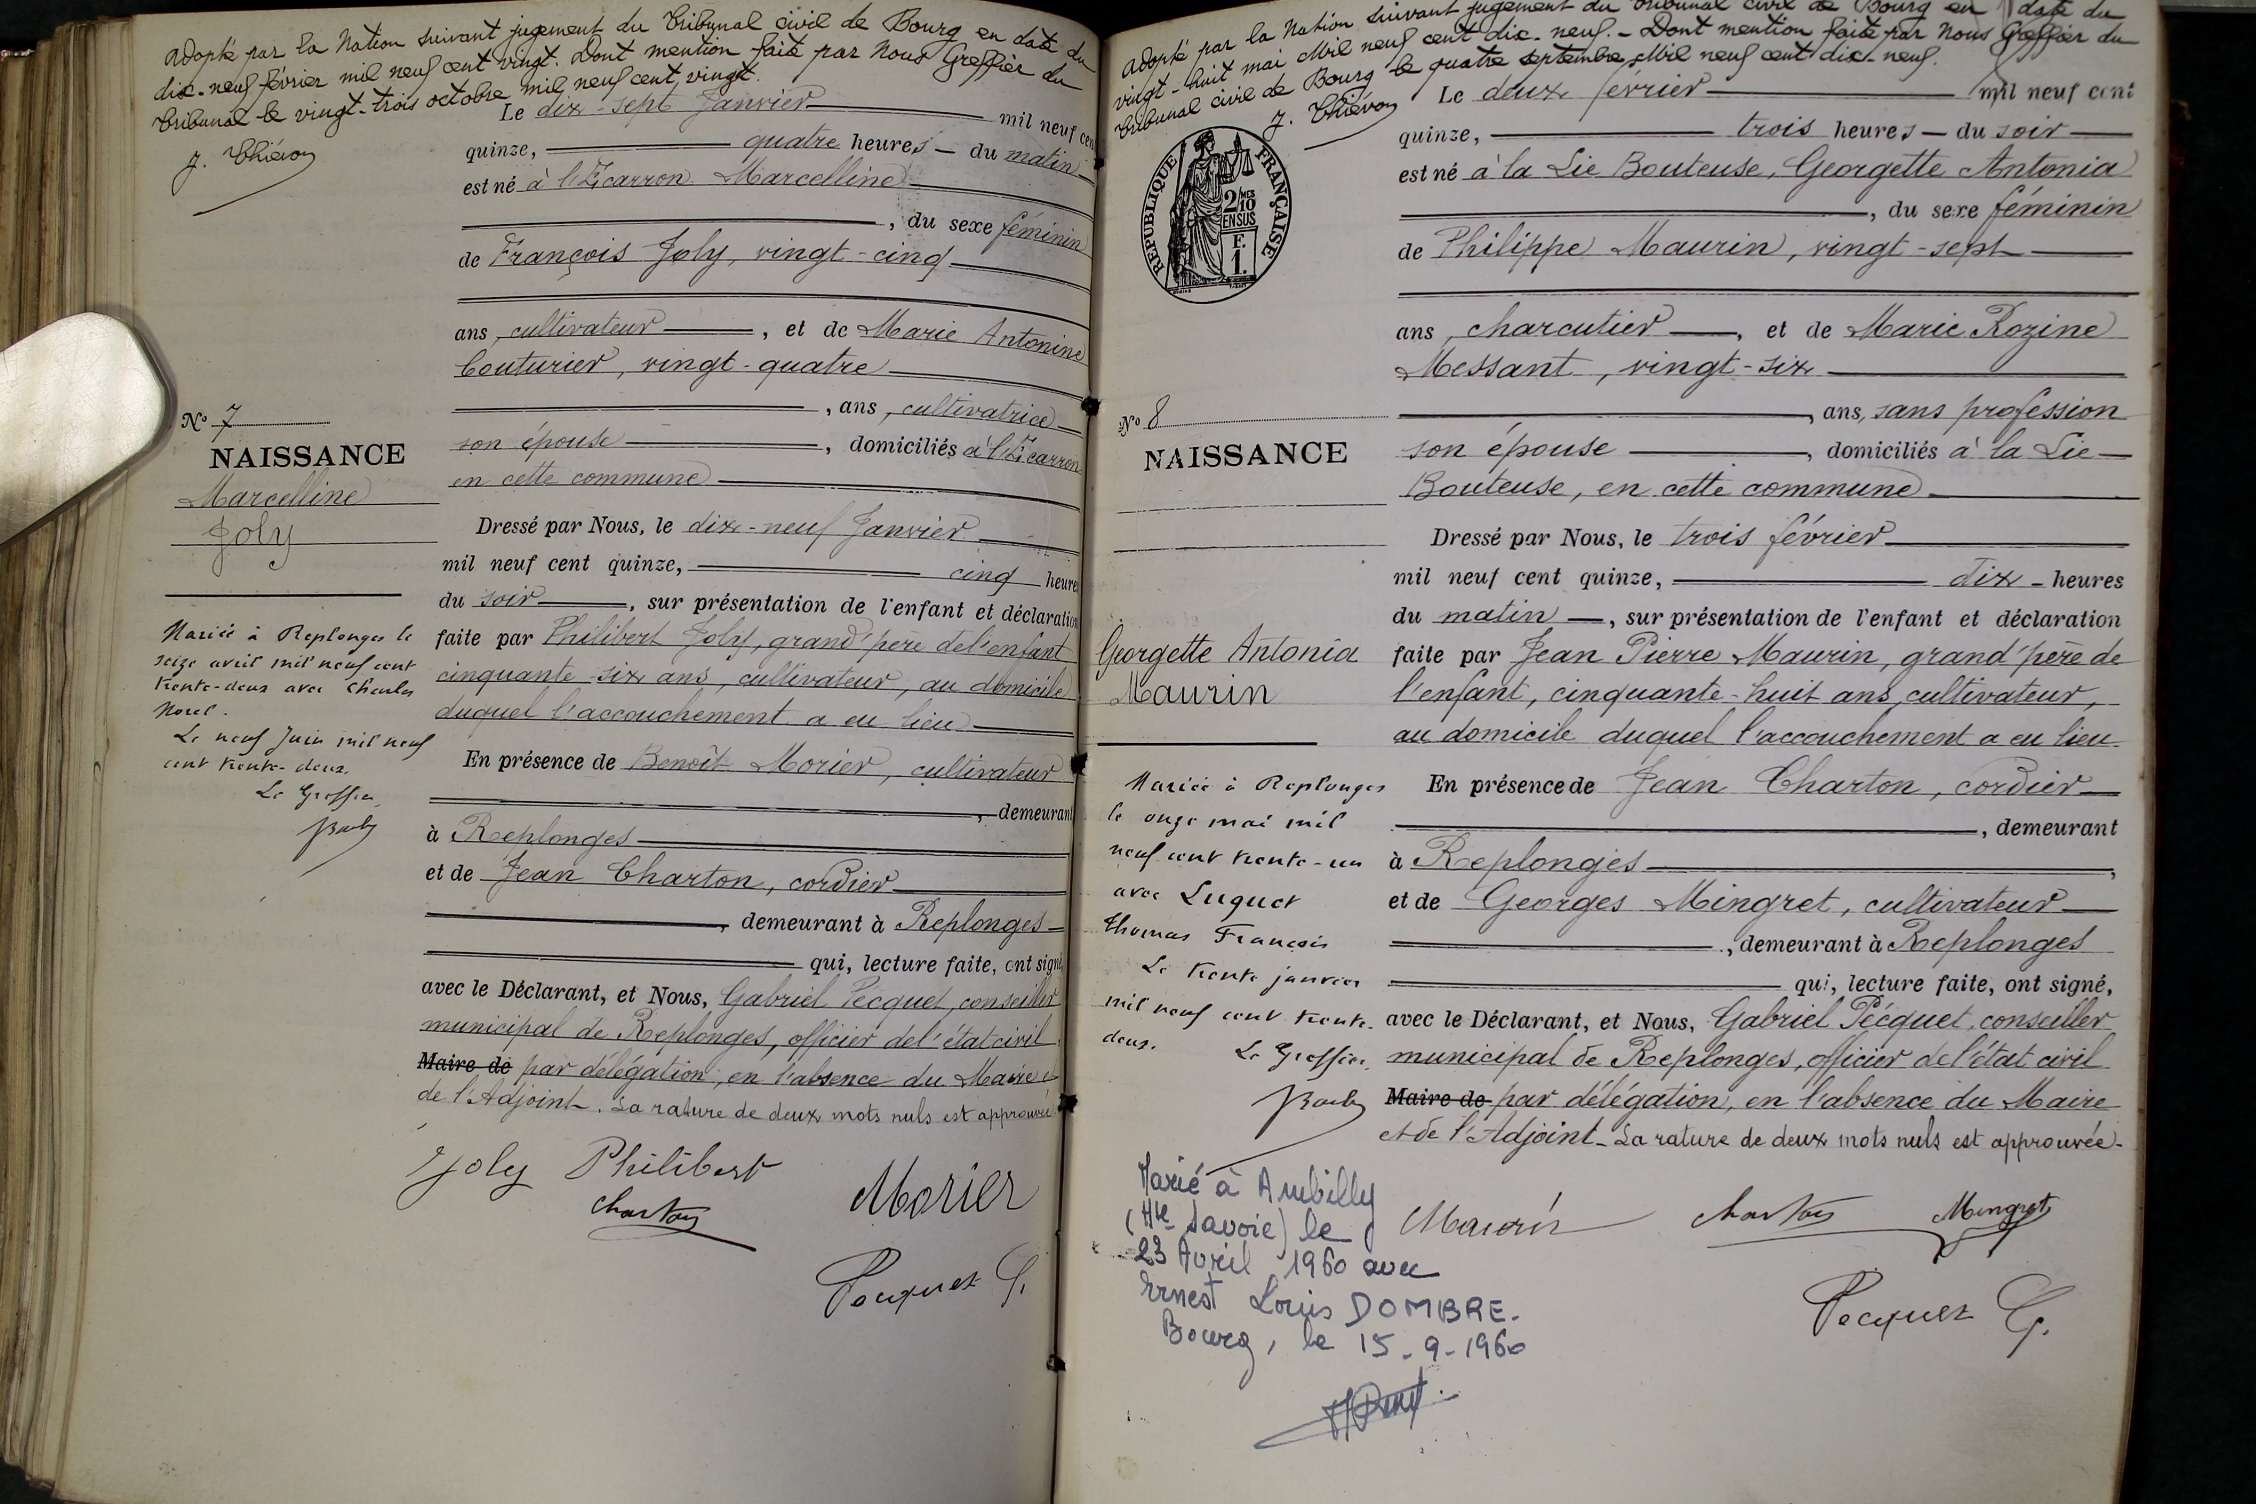 Adopté par la Nation suivant jugement du Tribunal civil de Bourg en date du
dix-neuf février mil neuf cent vingt. Dont mention faite par Nous Greffier du
Tribunal le vingt-trois octobre mil neuf cent vingt.
J. Thiévon
Le dix-sept Janvier mil neuf cen
quinze, quatre heures du matin
est né à l'Ecarron Marcelline
, du sexe féminin
de François Joly, vingt-cinq
ans, cultivateur, et de Marie Antonine
Couturier, vingt-quatre
, ans, cultivatrice
son épouse, domiciliés à l'Ecarron
en cette commune
No 7
NAISSANCE
Marcelline
Joly
Dressé par Nous, le dix-neuf Janvier
mil neuf cent quinze, cinq heures
du soir, sur présentation de l'enfant et déclaration
faite par Philibert Joly, grand'père de l'enfant
cinquante-six ans, cultivateur, au domicile
duquel l'accouchement a eu lieu
Mariée à Replonges le
seize avril mil neuf cent
trente-deux avec Charles
Morel.
Le neuf Juin mil neuf
cent trente-deux.
Le Greffier,
En présence de Benoît Morier, cultivateur
, demeurant
à Replonges
et de Jean Charton, cordier
, demeurant à Replonges
qui, lecture faite, ont signé
avec le Déclarant, et Nous, Gabriel Pecquet, conseiller
municipal de Replonges, officier de l'état civil
Maire de par délégation, en l'absence du Maire et
de l'Adjoint. La rature de deux mots nuls est approuvée
Joly Philibert
Charton
Morier
Pecquet G.
Adopté par la Nation suivant jugement du Tribunal civil de Bourg en date du
vingt-huit mai Mil neuf cent dix-neuf. - Dont mention faite par Nous Greffier du
Tribunal civil de Bourg le quatre septembre Mil neuf cent dix-neuf.
J. Thiévon
REPUBLIQUE FRANÇAISE
2/10 MES
EN SUS
F.
1.
Le deux février mil neuf cent
quinze, trois heures - du soir
est né à la Lie Bouteuse, Georgette Antonia
, du sexe féminin
de Philippe Maurin, vingt-sept
ans, charcutier, et de Marie Rozine
Messant, vingt-six
, ans, sans profession
son épouse, domiciliés à la Lie
Bouteuse, en cette commune
No 8
NAISSANCE
Georgette Antonia
Maurin
Dressé par Nous, le trois février
mil neuf cent quinze, dix - heures
du matin, sur présentation de l'enfant et déclaration
faite par Jean Pierre Maurin, grand'père de
l'enfant, cinquante-huit ans, cultivateur,
au domicile duquel l'accouchement a eu lieu
Mariée à Replonges
le onze mai mil
neuf cent trente-un
avec Luquet
Thomas François
Le trente janvier
mil neuf cent trente-
deux.
Le Greffier,
En présence de Jean Charton, cordier
, demeurant
à Replonges,
et de Georges Mingret, cultivateur
, demeurant à Replonges
qui, lecture faite, ont signé,
avec le Déclarant, et Nous, Gabriel Pécquet, conseiller
municipal de Replonges, officier de l'état civil
Maire de par délégation, en l'absence du Maire
et de l'Adjoint - La rature de deux mots nuls est approuvée -
Marié à Ambilly
(Hte Savoie) le
23 Avril 1960 avec
Ernest Louis DOMBRE.
Bourg, le 15-9-1960
Maurin
Charton
Mingret
Pecquet G.